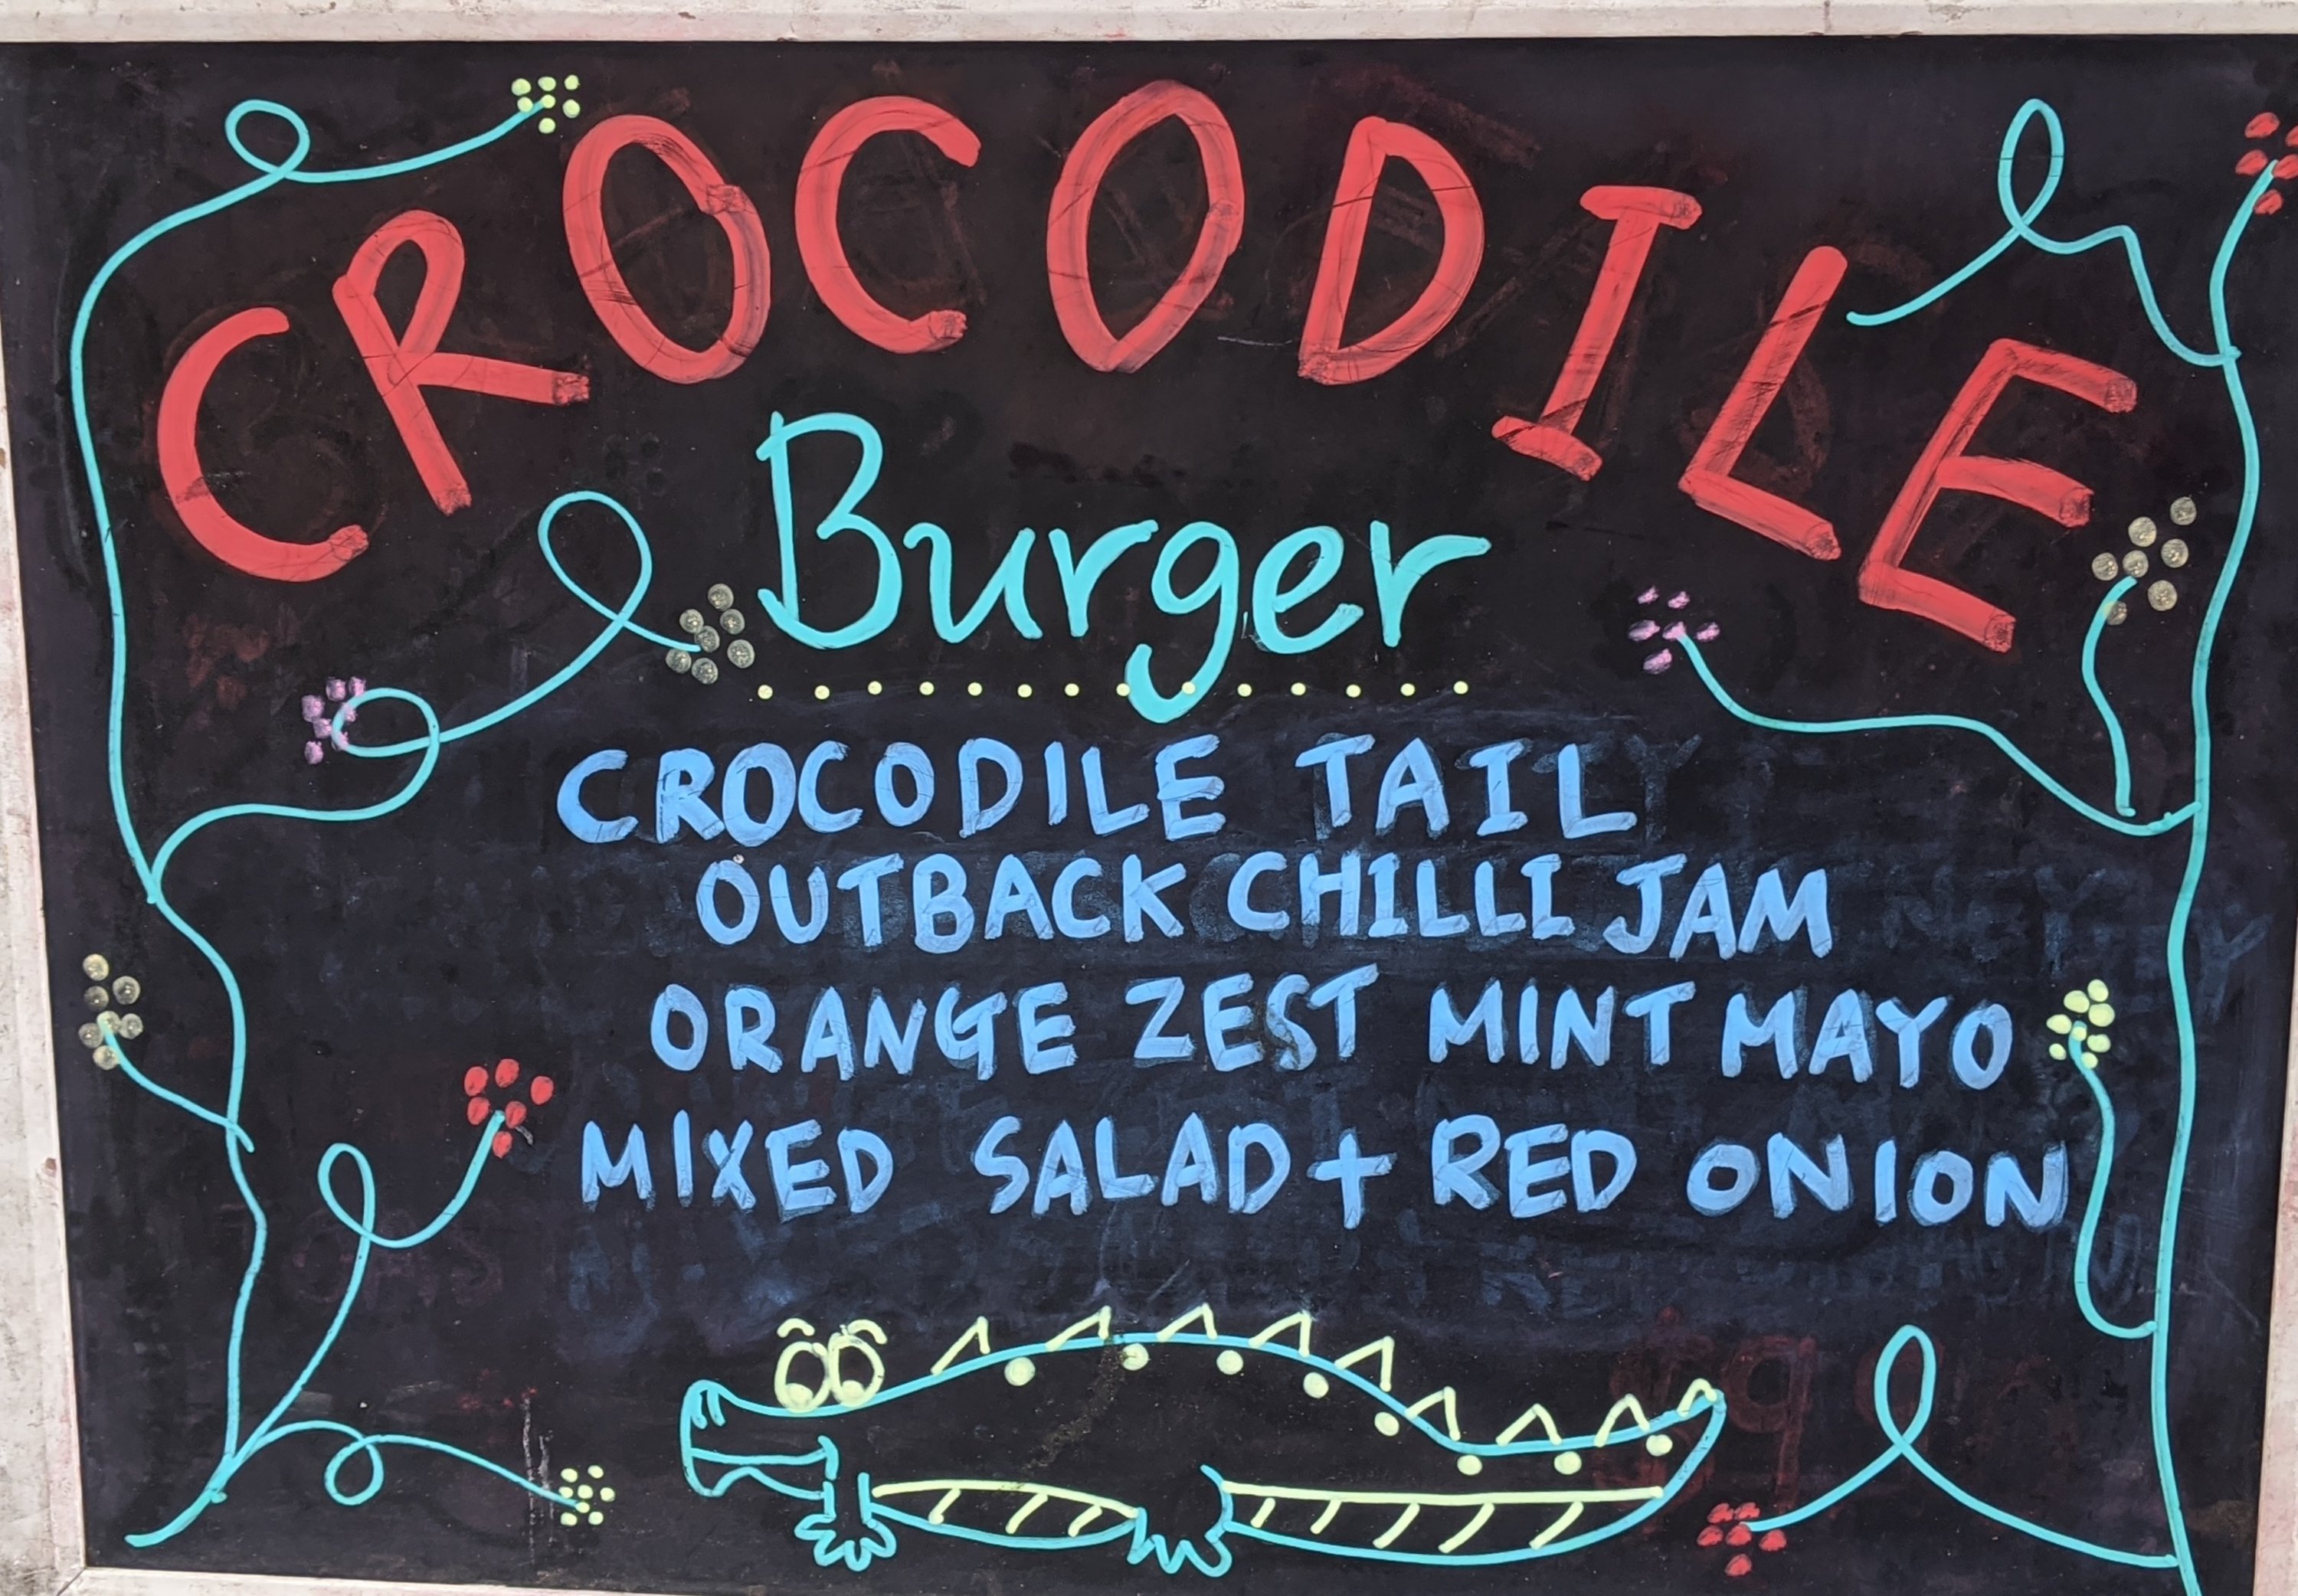 CROCODILE
Burger
CROCODILE TAIL
OUTBACK CHILLI JAM
ORANGE ZEST MINT MAYO
MIXED SALAD + RED ONION